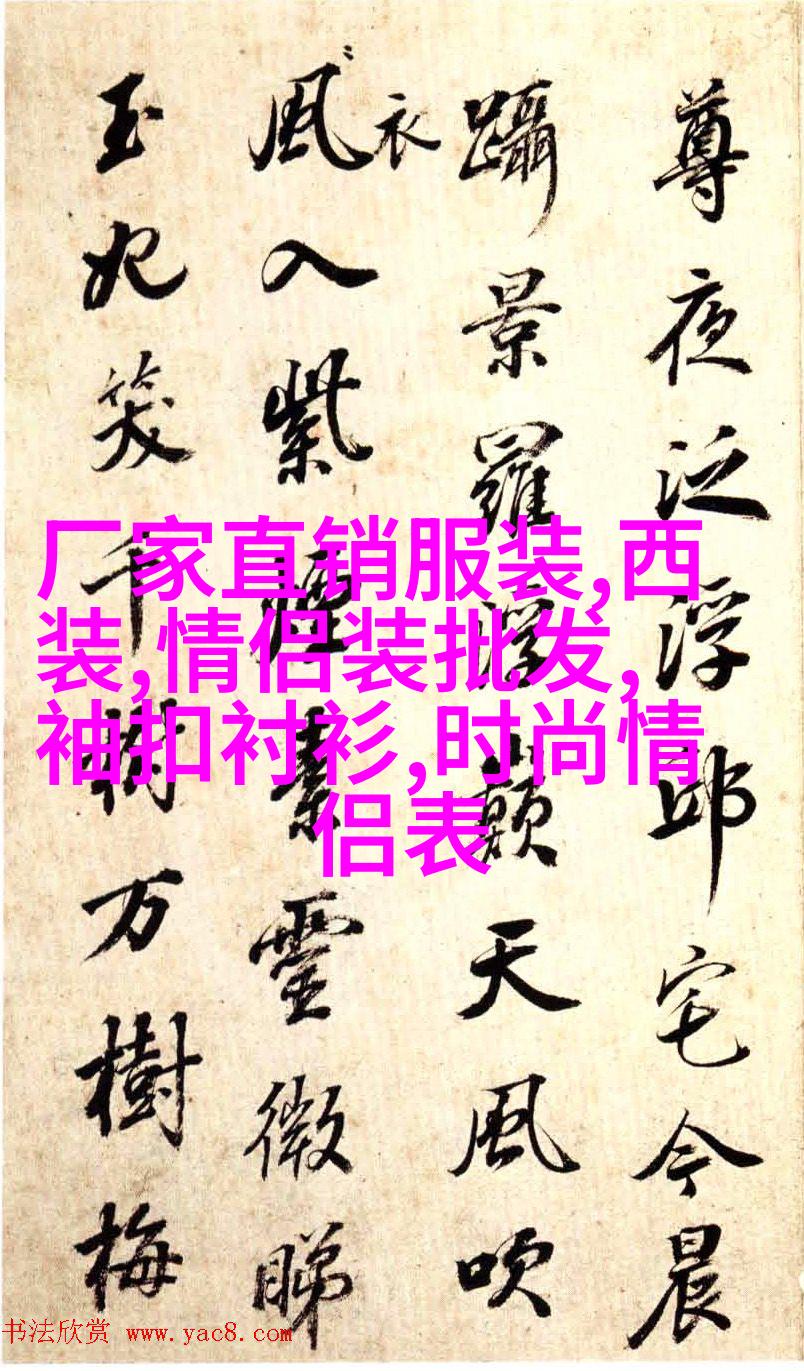 尊夜泛浮邱宅今晨
躡景羅浮巔天風吹
衣
風入紫煙素靈微睇
玉妃笑千樹万樹梅
厂家直销服装,西
装,情侣装批发,
袖扣衬衫,时尚情
侣表
书法欣赏 www.yac8.com